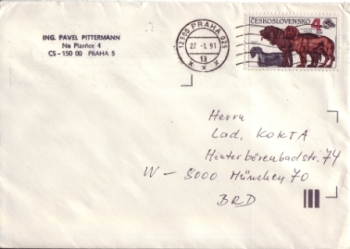 ING. PAVEL PITTERMANN
Na Pláňce 4
CS-150 00 PRAHA 5
12100 PRAHA 021
27 -1.91
13
ČESKOSLOVENSKO
4
Herrn
Lad. KOKTA
Hinterbärenbadstr. 74
W - 8000 München 70
BRD